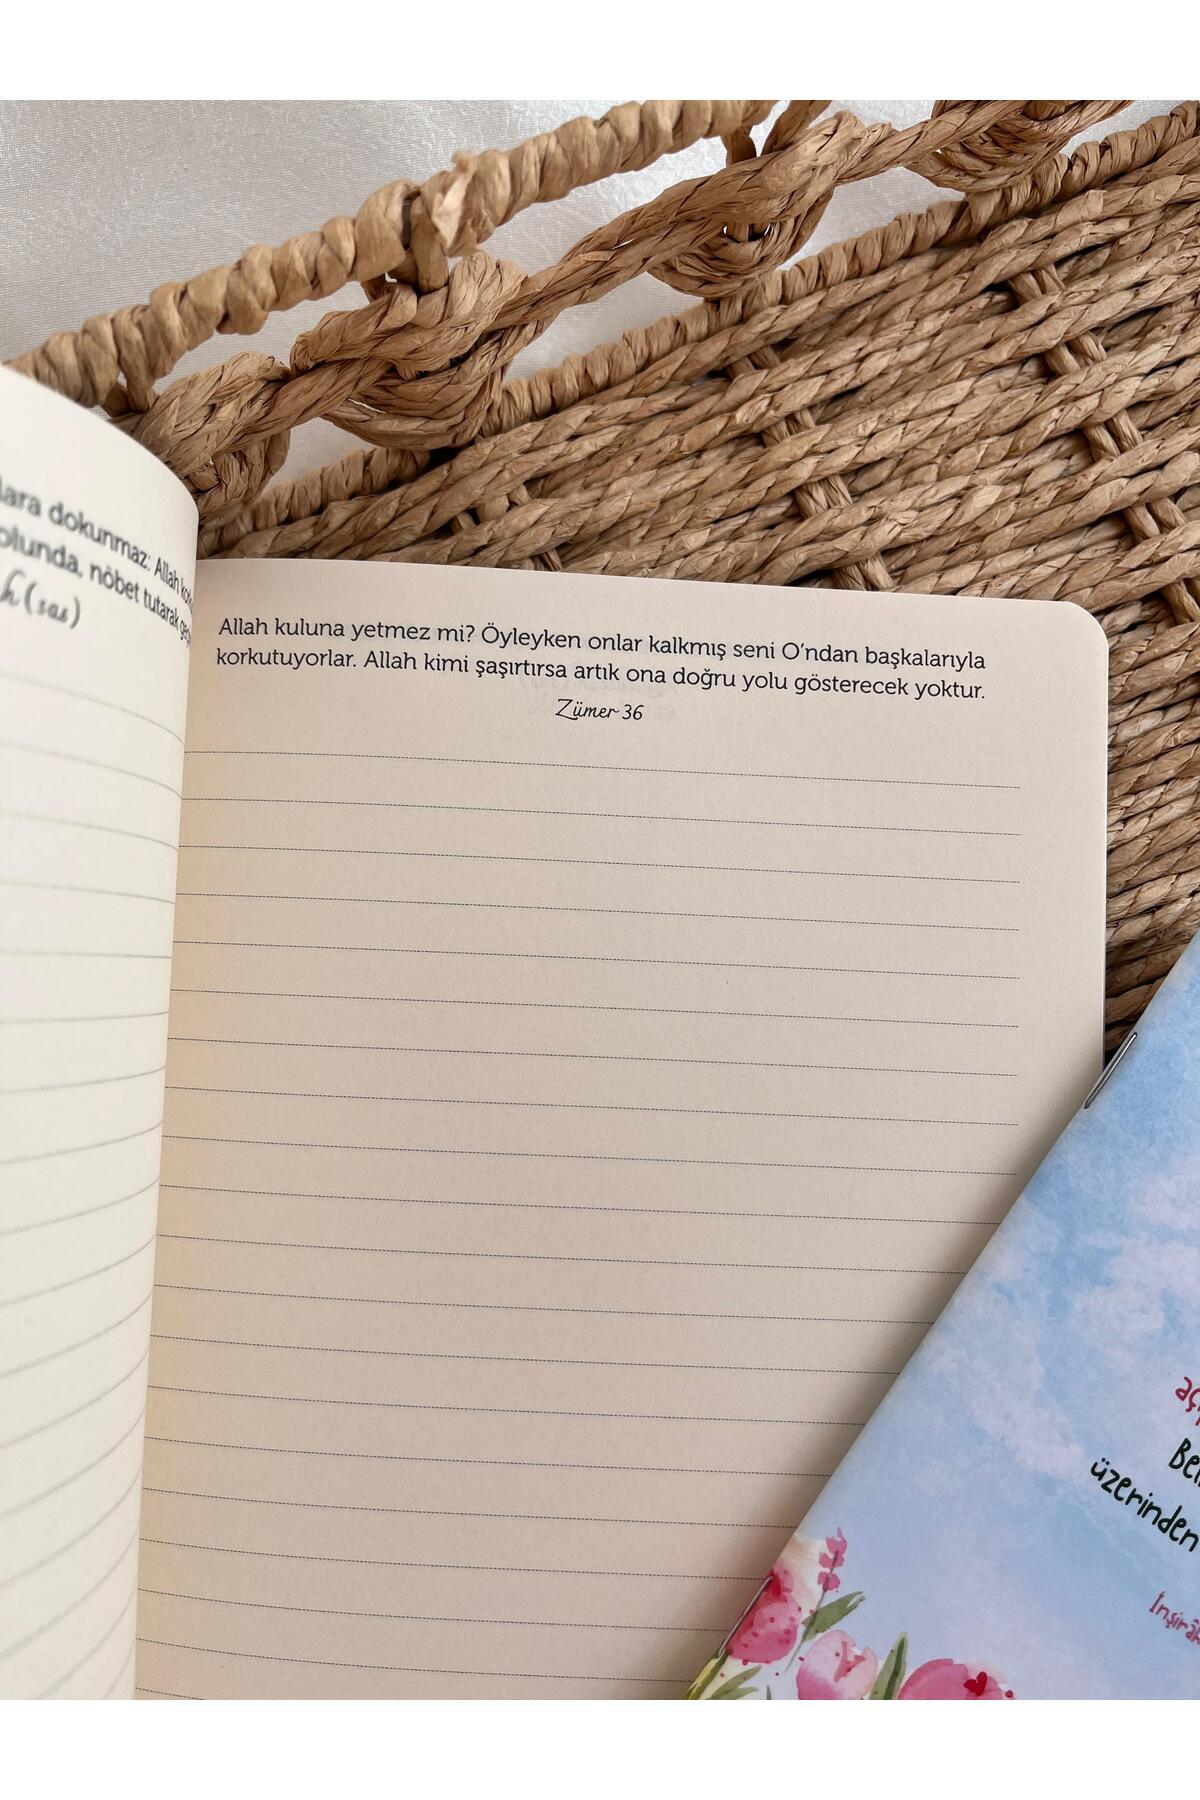 dokunmaz: Allah
nöbet tutarak
(sas)
Allah kuluna yetmez mi? Öyleyken onlar kalkmış seni O'ndan başkalarıyla
korkutuyorlar. Allah kimi şaşırtırsa artık ona doğru yolu gösterecek yoktur.
Zümer 36
üzerinden